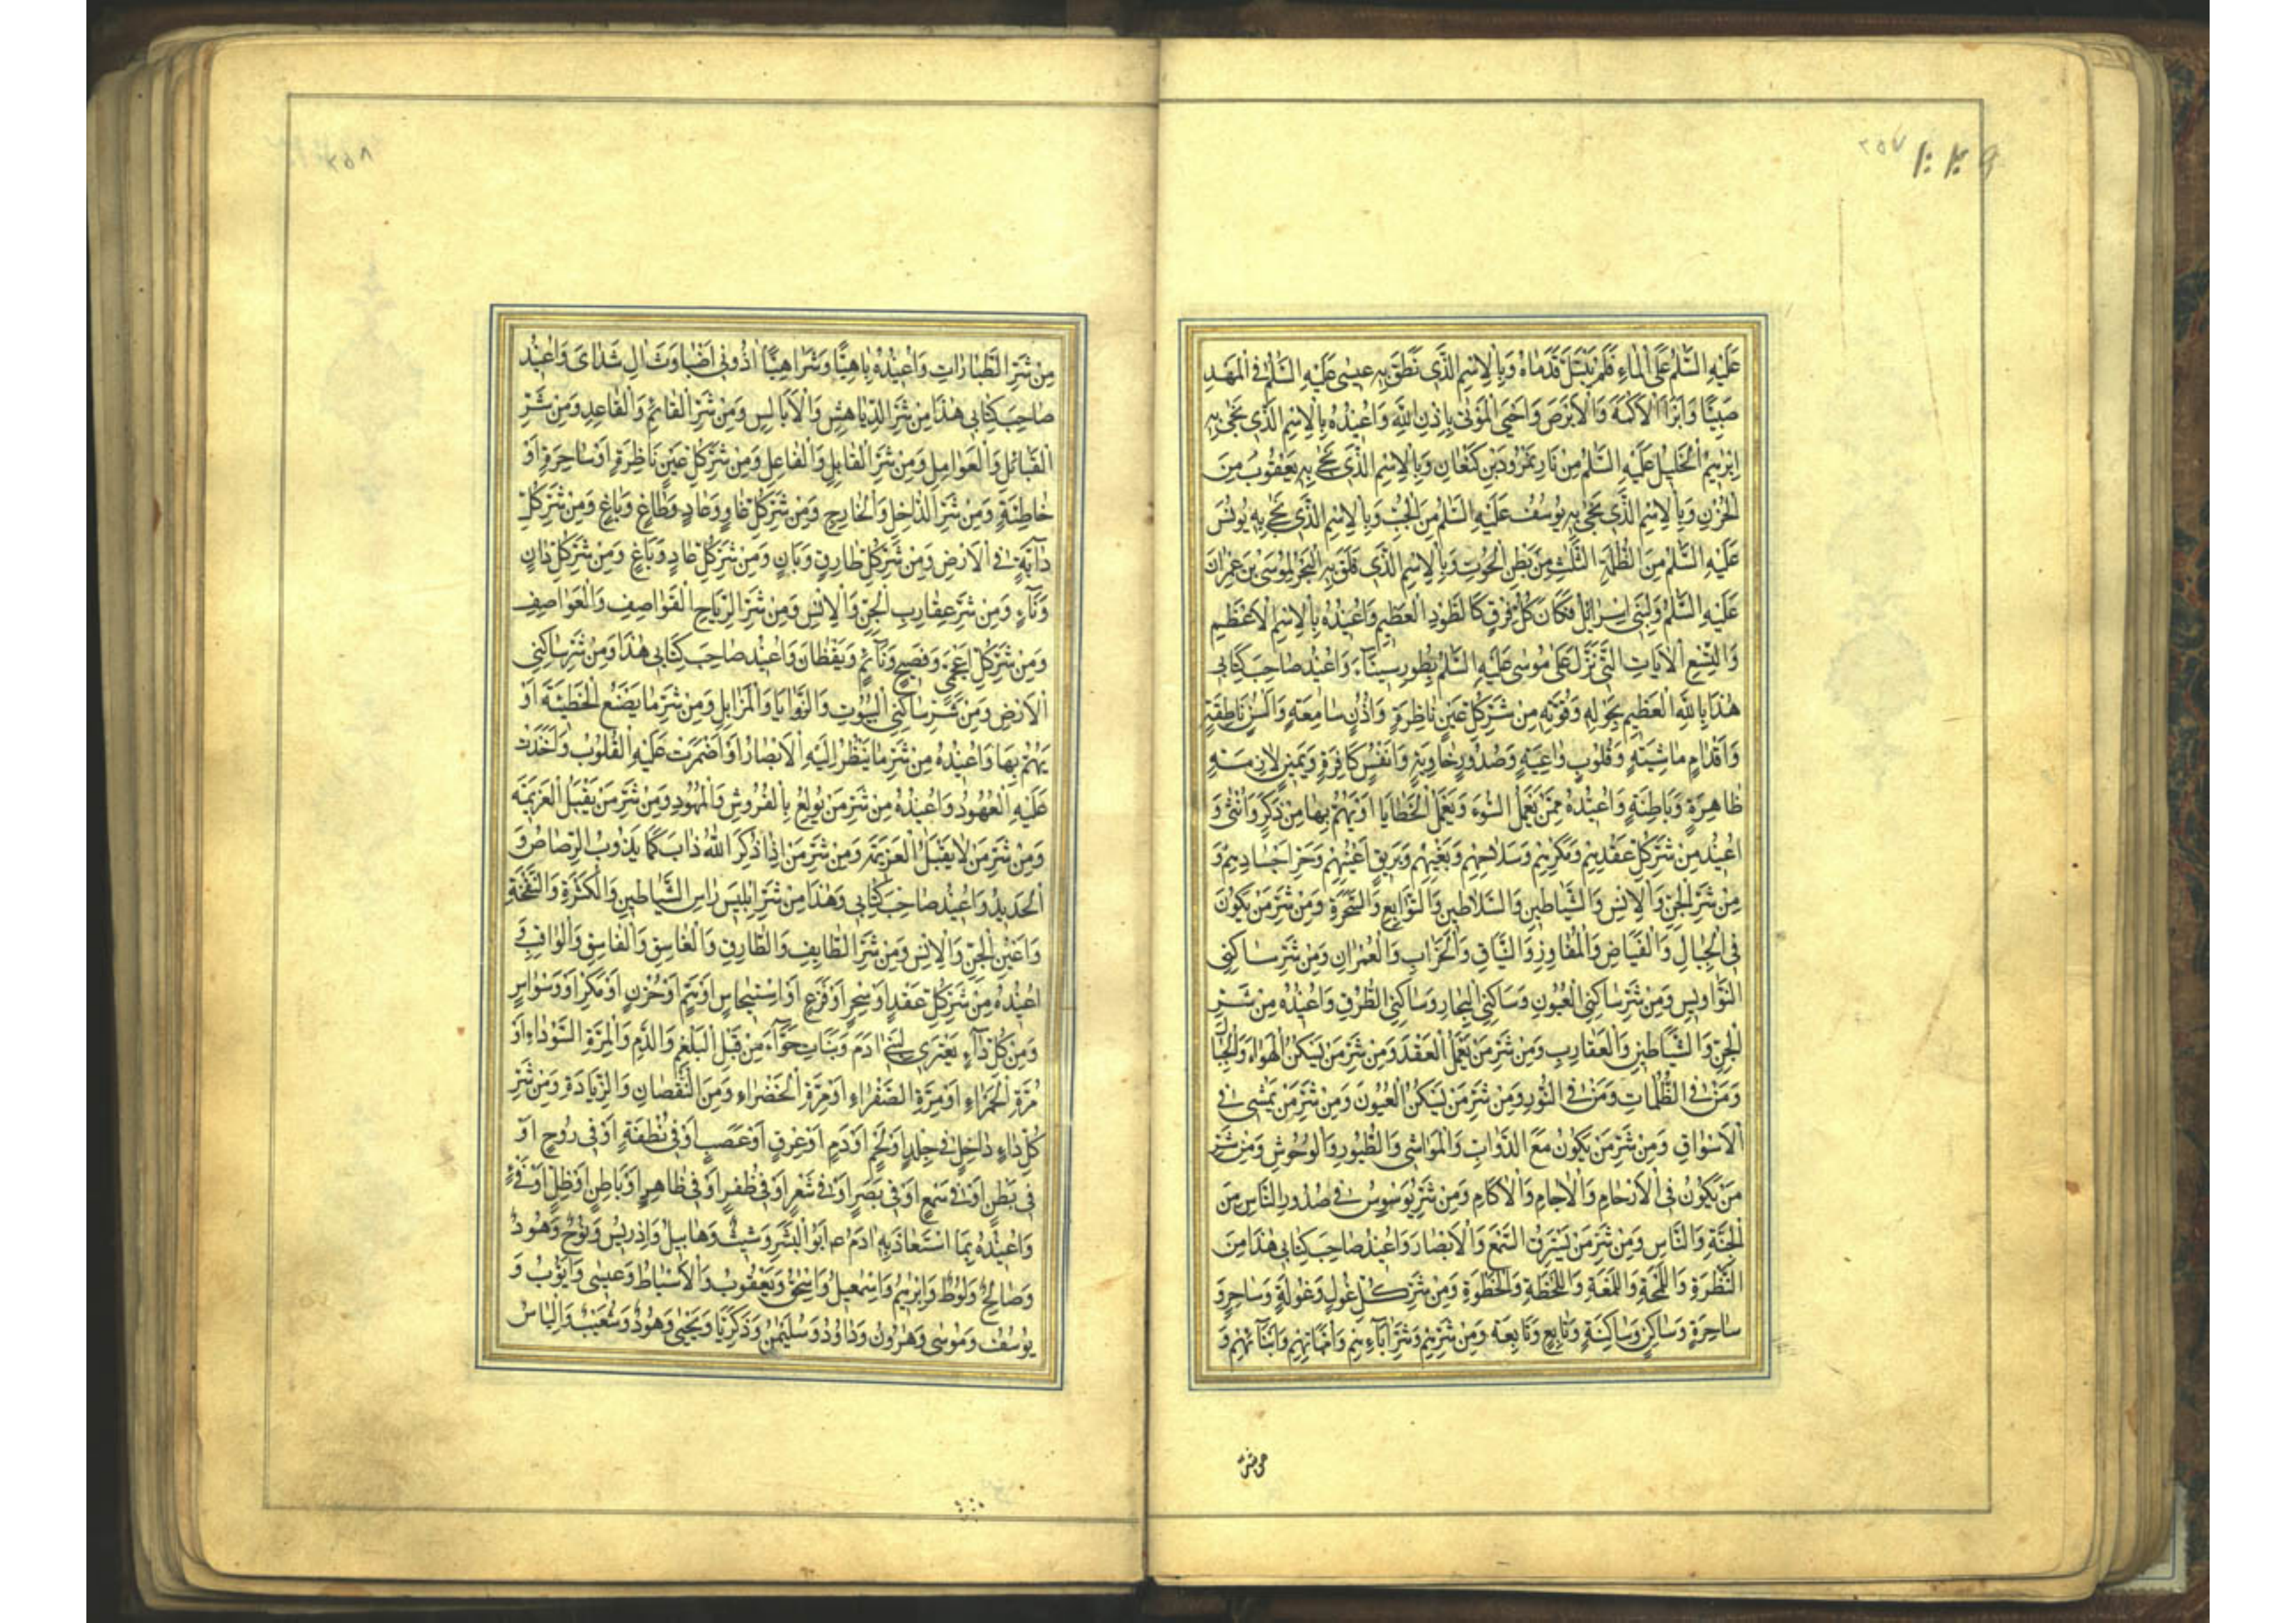 ٢٥٧
عَلَيْهِ السَّلٰمُ عَلَى الْمَاءِ فَلَمْ يَبْتَلَّ قَدَمَاهُ وَبِالْاِسْمِ الَّذِى نَطَقَ بِهِ عِيسٰى عَلَيْهِ السَّلٰمُ فِى الْمَهْدِ
صَبِيًّا وَاَبْرَأَ الْاَكْمَهَ وَالْاَبْرَصَ وَاَحْيَى الْمَوْتٰى بِاِذْنِ اللّٰهِ وَاُعِيذُهُ بِالْاِسْمِ الَّذِى نَجٰى بِهِ
اِبْرٰهِيمُ الْخَلِيلُ عَلَيْهِ السَّلٰمُ مِنْ نَارِ نَمْرُودَ بْنِ كَنْعَانَ وَبِالْاِسْمِ الَّذِى نَجٰى بِهِ يَعْقُوبُ مِنَ
الْحُزْنِ وَبِالْاِسْمِ الَّذِى نَجٰى بِهِ يُوسُفُ عَلَيْهِ السَّلٰمُ مِنَ الْجُبِّ وَبِالْاِسْمِ الَّذِى نَجٰى بِهِ يُونُسُ
عَلَيْهِ السَّلٰمُ مِنَ الظُّلْمَةِ الثَّلٰثِ مِنْ بَطْنِ الْحُوتِ وَبِالْاِسْمِ الَّذِى فَلَقَ بِهِ الْبَحْرَ لِمُوسَى بْنِ عِمْرَانَ
عَلَيْهِ السَّلٰمُ وَلِبَنِى اِسْرَائِلَ فَكَانَ كُلُّ فِرْقٍ كَالطَّوْدِ الْعَظِيمِ وَاُعِيذُهُ بِالْاِسْمِ الْاَعْظَمِ
وَالتِّسْعِ الْاٰيَاتِ الَّتِى نَزَلَ عَلٰى مُوسٰى عَلَيْهِ السَّلٰمُ بِطُورِ سِينَآءَ وَاُعِيذُ صَاحِبَ كِتَابِى
هٰذَا بِاللّٰهِ الْعَظِيمِ بِحَوْلِهِ وَقُوَّتِهِ مِنْ شَرِّ كُلِّ عَيْنٍ نَاظِرَةٍ وَاُذُنٍ سَامِعَةٍ وَاَلْسُنٍ نَاطِقَةٍ
وَاَقْدَامٍ مَاشِيَةٍ وَقُلُوبٍ وَاعِيَةٍ وَصُدُورٍ خَاوِيَةٍ وَاَنْفُسٍ كَافِرَةٍ وَبِمَنْ لَازِمَةٍ
ظَاهِرَةٍ وَبَاطِنَةٍ وَاُعِيذُهُ مِمَّنْ يَعْمَلُ السُّوءَ وَيَعْمَلُ الْخَطَايَا اَوْ يَهُمُّ بِهَا مِنْ ذَكَرٍ وَاُنْثٰى وَ
اُعِيذُ مِنْ شَرِّ كُلِّ عَقْدِهِمْ وَمَكْرِهِمْ وَسِلَاحِهِمْ وَبَغْيِهِمْ وَبَرِيقِ اَعْيُنِهِمْ وَحَرِّ اَجْسَادِهِمْ وَ
مِنْ شَرِّ الْجِنِّ وَالْاِنْسِ وَالشَّيَاطِينِ وَالسَّلَاطِينِ وَالتَّوَابِعِ وَالسَّحَرَةِ وَمِنْ شَرِّ مَنْ يَكُونُ
فِى الْجِبَالِ وَالْغِيَاضِ وَالْمَفَاوِزِ وَالْفَيَافِى وَالْخَرَابِ وَالْعُمْرَانِ وَمِنْ شَرِّ سَاكِنِى
النَّوَاوِيسِ وَمِنْ شَرِّ سَاكِنِى الْعُيُونِ وَسَاكِنِى الْبِحَارِ وَسَاكِنِى الطُّرُقِ وَاُعِيذُهُ مِنْ شَرِّ
الْجِنِّ وَالشَّيَاطِينِ وَالْعَقَارِبِ وَمِنْ شَرِّ مَنْ يَعْمَلُ الْعُقَدَ وَمِنْ شَرِّ مَنْ يَسْكُنُ الْهَوَاءَ وَالْجِبَا
وَمَنْ فِى الظُّلُمَاتِ وَمَنْ فِى النُّورِ وَمِنْ شَرِّ مَنْ يَسْكُنُ الْعُيُونَ وَمِنْ شَرِّ مَنْ يَمْشِى فِى
الْاَسْوَاقِ وَمِنْ شَرِّ مَنْ يَكُونُ مَعَ الدَّوَابِّ وَالْمَوَاشِى وَالطُّيُورِ وَالْوُحُوشِ وَمِنْ شَرِّ
مَنْ يَكُونُ فِى الْاَرْحَامِ وَالْاٰجَامِ وَالْاٰكَامِ وَمِنْ شَرِّ يُوَسْوِسُ فِى صُدُورِ النَّاسِ مِنَ
الْجِنَّةِ وَالنَّاسِ وَمِنْ شَرِّ مَنْ يَسْتَرِقُ السَّمْعَ وَالْاَبْصَارَ وَاُعِيذُ صَاحِبَ كِتَابِى هٰذَا مِنَ
النَّظْرَةِ وَاللَّمْحَةِ وَاللَّمْعَةِ وَاللَّحْظَةِ وَالْخَطْوَةِ وَمِنْ شَرِّ كُلِّ غُولٍ وَغُولَةٍ وَسَاحِرٍ وَ
سَاحِرَةٍ وَسَاكِنٍ وَسَاكِنَةٍ وَتَابِعٍ وَتَابِعَةٍ وَمِنْ شَرِّهِمْ وَشَرِّ اٰبَآءِهِمْ وَاُمَّهَاتِهِمْ وَاَبْنَآئِهِمْ وَ
من شر
٢٥٨
مِنْ شَرِّ الطَّيَّارَاتِ وَاُعِيذُهُ يَاهِيًّا وَشَرَاهِيًّا اَذُونِى اَصَبَاوُثَ اٰلِ شَدَاىَ وَاُعِيذُ
صَاحِبَ كِتَابِى هٰذَا مِنْ شَرِّ الدَّيَاهِشِ وَالْاَبَالِسِ وَمِنْ شَرِّ الْقَائِمِ وَالْقَاعِدِ وَمِنْ شَرِّ
الْقَبَائِلِ وَالْعَوَامِلِ وَمِنْ شَرِّ الْقَابِلِ وَالْفَاعِلِ وَمِنْ شَرِّ كُلِّ عَيْنٍ نَاظِرَةٍ اَوْ سَاحِرَةٍ اَوْ
خَاطِئَةٍ وَمِنْ شَرِّ الدَّاخِلِ وَالْخَارِجِ وَمِنْ شَرِّ كُلِّ غَاوٍ وَعَادٍ وَطَاغٍ وَبَاغٍ وَمِنْ شَرِّ كُلِّ
دَآبَّةٍ فِى الْاَرْضِ وَمِنْ شَرِّ كُلِّ طَارِقٍ وَبَانٍ وَمِنْ شَرِّ كُلِّ عَادٍ وَبَاغٍ وَمِنْ شَرِّ كُلِّ دَانٍ
وَنَآءٍ وَمِنْ شَرِّ عَقَارِبِ الْجِنِّ وَالْاِنْسِ وَمِنْ شَرِّ الرِّيَاحِ الْقَوَاصِفِ وَالْعَوَاصِفِ
وَمِنْ شَرِّ كُلِّ اَعْجَمِىٍّ وَفَصِيحٍ وَنَآئِمٍ وَيَقْظَانَ وَاُعِيذُ صَاحِبَ كِتَابِى هٰذَا وَمِنْ شَرِّ سَاكِنِى
الْاَرْضِ وَمِنْ شَرِّ سَاكِنِى الْبُيُوتِ وَالزَّوَايَا وَالْمَزَابِلِ وَمِنْ شَرِّ مَا يَصْنَعُ الْخَطِيئَةَ اَوْ
يَهُمُّ بِهَا وَاُعِيذُهُ مِنْ شَرِّ مَا يَنْظُرُ اِلَيْهِ الْاَبْصَارُ اَوْ اَضْمَرَتْ عَلَيْهِ الْقُلُوبُ وَاَخَذَتْ
عَلَيْهِ الْعُهُودُ وَاُعِيذُهُ مِنْ شَرِّ مَنْ يُولَعُ بِالْفُرُوشِ وَالْمُهُودِ وَمِنْ شَرِّ مَنْ يَقْبَلُ الْعَزِيمَةَ
وَمِنْ شَرِّ مَنْ لَا يَقْبَلُ الْعَزِيمَةَ وَمِنْ شَرِّ مَنْ اِذَا ذُكِرَ اللّٰهُ ذَابَ كَمَا يَذُوبُ الرَّصَاصُ وَ
الْحَدِيدُ وَاُعِيذُ صَاحِبَ كِتَابِى وَهٰذَا مِنْ شَرِّ اِبْلِيسَ رَاْسِ الشَّيَاطِينِ وَالْكَثْرَةِ وَالنَّفْخَةِ
وَاَعْيُنِ الْجِنِّ وَالْاِنْسِ وَمِنْ شَرِّ الطَّايِفِ وَالطَّارِقِ وَالْغَاسِقِ وَالْفَاسِقِ وَالْوَاقِبِ وَ
اُعِيذُهُ مِنْ شَرِّ كُلِّ عَقْدٍ اَوْ سِحْرٍ اَوْ فَزَعٍ اَوْ اسْتِيحَاشٍ اَوْ هَمٍّ اَوْ حُزْنٍ اَوْ مَكْرٍ اَوْ وَسْوَاسٍ
وَمِنْ كُلِّ دَآءٍ يَعْتَرِى لِبَنِى اٰدَمَ وَبَنَاتِ حَوَّآءَ مِنْ قِبَلِ الْبَلْغَمِ وَالدَّمِ وَالْمِرَّةِ السَّوْدَاءِ اَوْ
مُرَّةِ الْحَمْرَاءِ اَوْ مِرَّةِ الصَّفْرَاءِ اَوْ مِرَّةِ الْخَضْرَاءِ وَمِنَ النُّقْصَانِ وَالزِّيَادَةِ وَمِنْ شَرِّ
كُلِّ دَاءٍ دَاخِلٍ فِى جِلْدٍ اَوْ لَحْمٍ اَوْ دَمٍ اَوْ عِرْقٍ اَوْ عَصَبٍ اَوْ فِى نُطْفَةٍ اَوْ فِى رُوحٍ اَوْ
فِى بَطْنٍ اَوْ فِى سَمْعٍ اَوْ فِى بَصَرٍ اَوْ فِى شَعْرٍ اَوْ فِى ظُفْرٍ اَوْ فِى ظَاهِرٍ اَوْ بَاطِنٍ اَوْ ظِلٍّ اَوْ فَىْءٍ
وَاُعِيذُهُ بِمَا اسْتَعَاذَ بِهِ اٰدَمُ ع اَبُو الْبَشَرِ وَشِيثُ وَهَابِيلُ وَاِدْرِيسُ وَنُوحٌ وَهُودٌ
وَصَالِحٌ وَلُوطٌ وَاِبْرٰهِيمُ وَاِسْمٰعِيلُ وَاِسْحٰقُ وَيَعْقُوبُ وَالْاَسْبَاطُ وَعِيسٰى وَاَيُّوبُ وَ
يُوسُفُ وَمُوسٰى وَهٰرُونُ وَدَاوُدُ وَسُلَيْمٰنُ وَذَكَرِيَّا وَيَحْيٰى وَهُودٌ وَشُعَيْبٌ وَاِلْيَاسُ